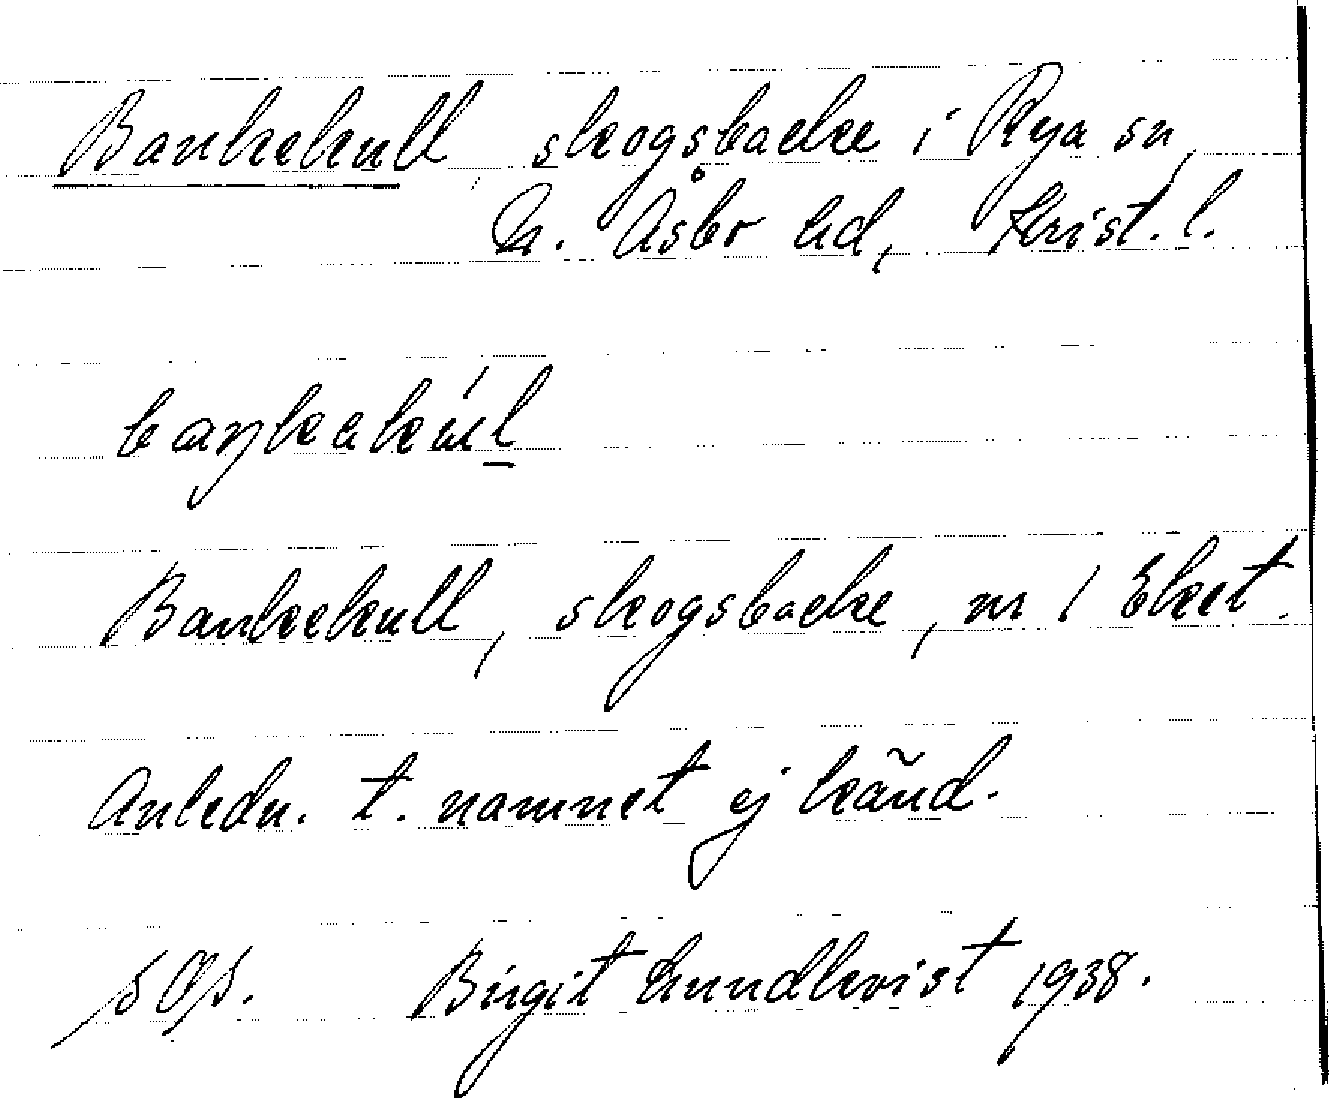 Bankekull, skogsbacke i Rya sn,
N. Åsbo hd, Krist. l.
baŋkəkúl
Bankekull, skogsbacke, nr 1 Eket.
Anledn. t. namnet ej känd.
Birgit Lundkvist 1938.